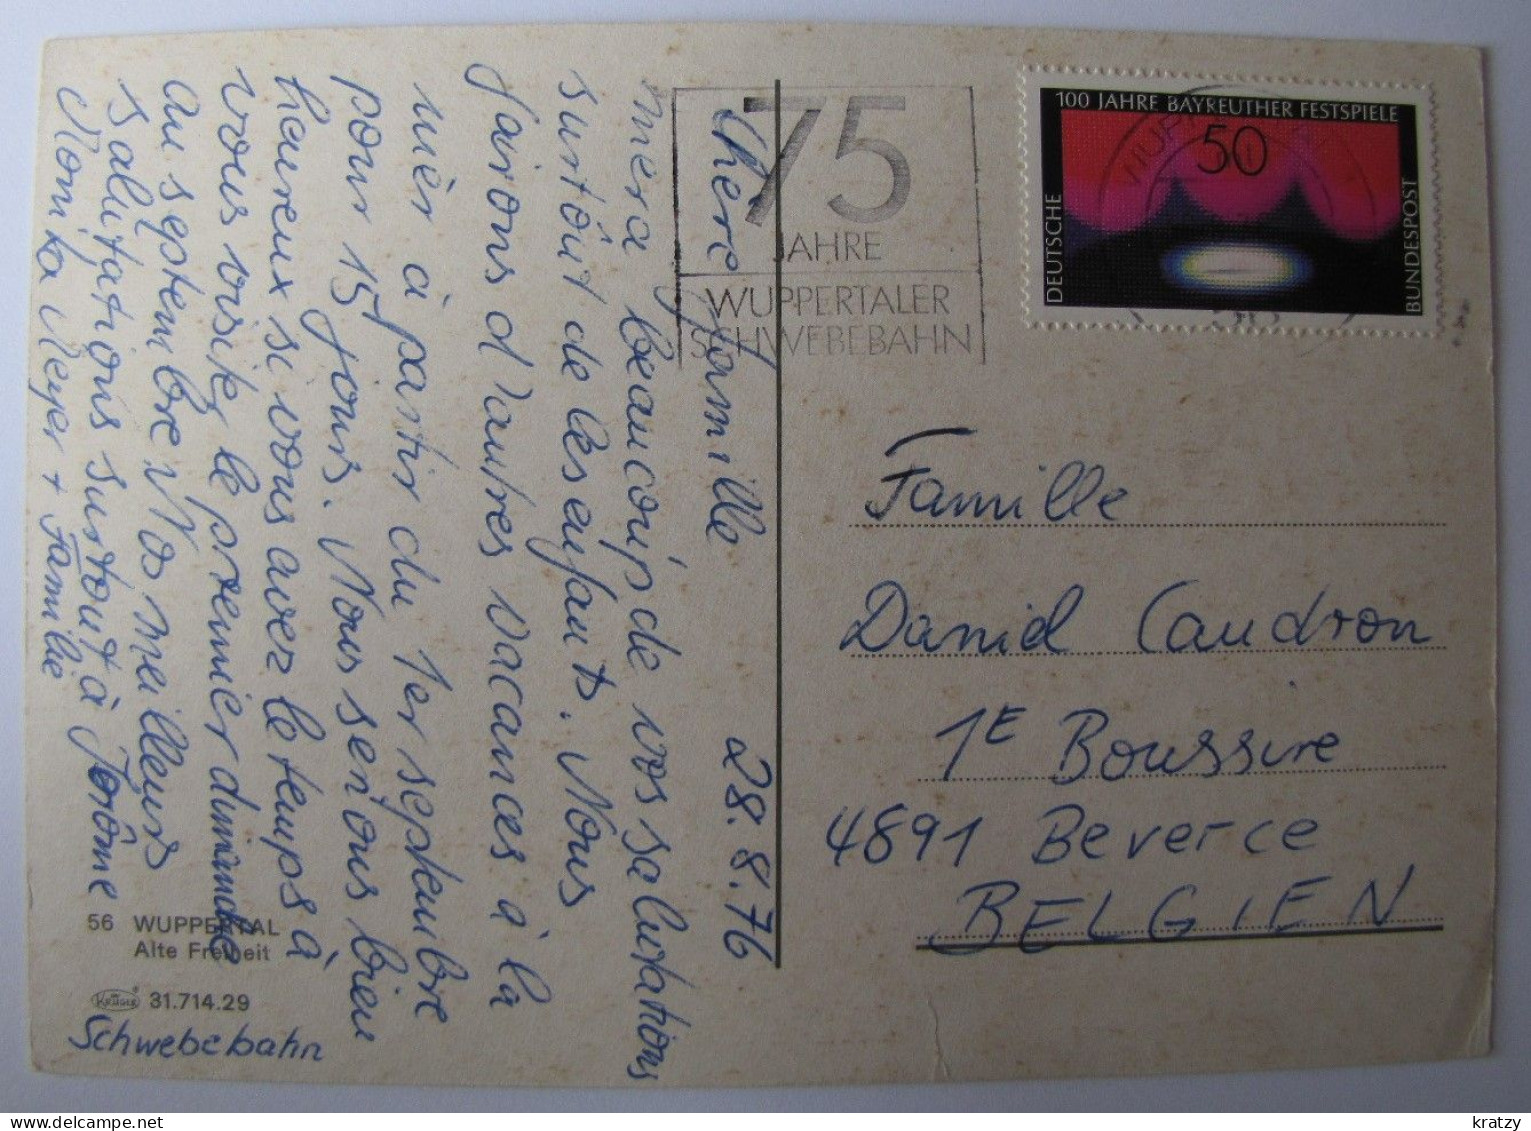 Chère famille 28.8.76
merci beaucoup de vos salutations
surtôut de les enfants. Nous
fairons d'autres vacances à la
mèr à partir du 1er septembre
pour 15 jours. Nous serons bien
heureux si vous avez le temps à
vous visiter le premier dimanche
au septembre. Nos meilleurs
Salutations surtout à Jérôme
Monika Meyer + Familie
56 WUPPERTAL
Alte Freiheit
KRÜGER 31.714.29
Schwebebahn
75
JAHRE
WUPPERTALER
SCHWEBEBAHN
100 JAHRE BAYREUTHER FESTSPIELE
50
DEUTSCHE
BUNDESPOST
Familie
Daniel Caudron
1E Boussire
4891 Beverce
BELGIEN
kratzy